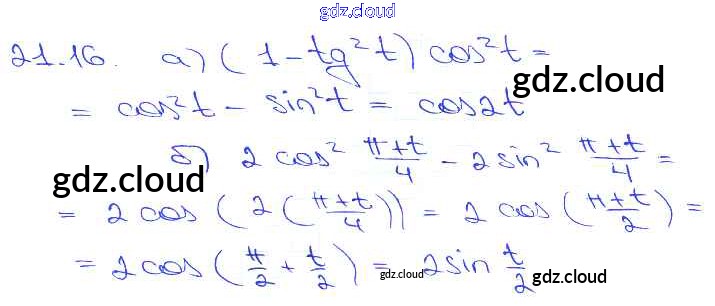 gdz.cloud
21.16. а) (1 - tg²t) cos²t =
= cos²t - sin²t = cos2t
gdz.cloud
б) 2 cos² (π+t)/4 - 2 sin² (π+t)/4 =
gdz.cloud
= 2 cos (2 ((π+t)/4)) = 2 cos ((π+t)/2) =
= 2 cos (π/2 + t/2) = 2 sin t/2
gdz.cloud gdz.cloud